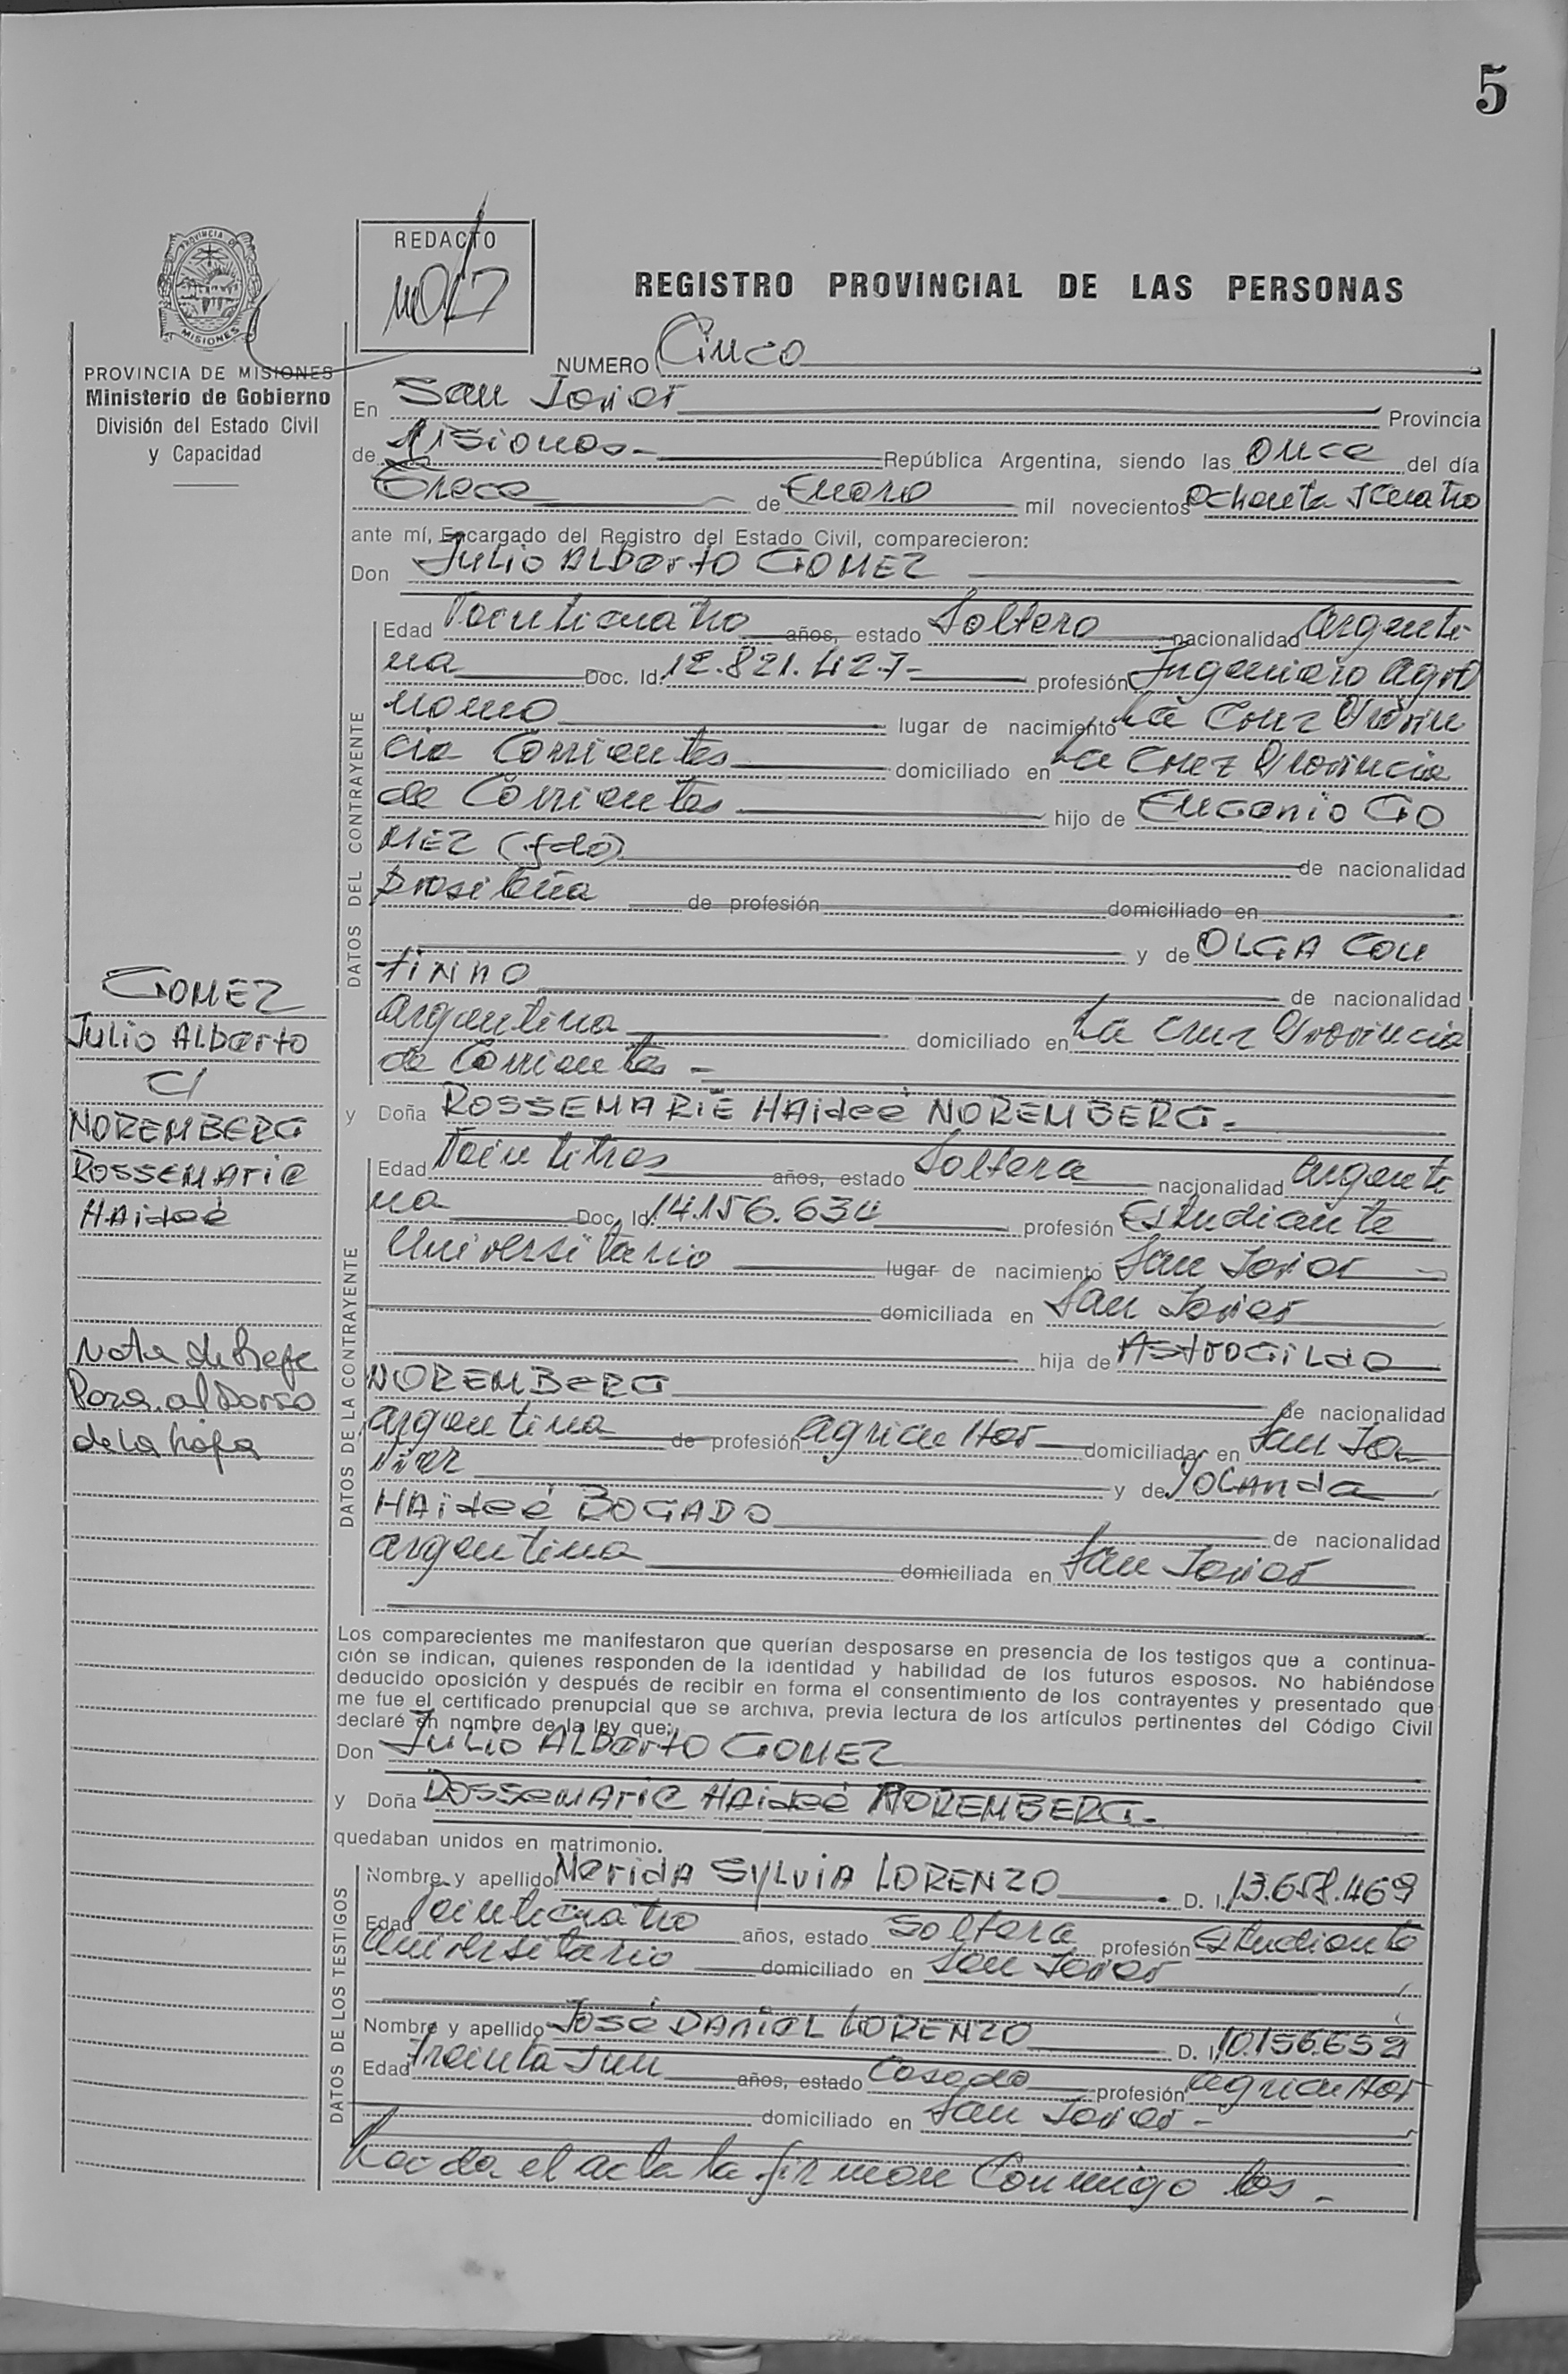 5
REDACTO
REGISTRO PROVINCIAL DE LAS PERSONAS
PROVINCIA DE
MISIONES
PROVINCIA DE MISIONES
Ministerio de Gobierno
División del Estado Civil
y Capacidad
NUMERO Cinco
En San Javier Provincia
de Misiones - República Argentina, siendo las once del día
Trece de Enero mil novecientos Ochenta y Cuatro
ante mí, Encargado del Registro del Estado Civil, comparecieron:
Don Julio ALberto GOMEZ
DATOS DEL CONTRAYENTE
Edad Veinticuatro años, estado Soltero nacionalidad argenti-
na Doc. Id. 12.821.427- profesión Ingeniero agro
nomo lugar de nacimiento La Cruz Provin
cia Corrientes domiciliado en La Cruz Provincia
de Corrientes hijo de Eugenio GO
MEZ (fdo) de nacionalidad
brasileña de profesión domiciliado en
y de OLGA COU
TINHO de nacionalidad
argentina domiciliado en La Cruz Provincia
de Corrientes -
y Doña ROSSEMARIE HAideé NOREMBERG.-
DATOS DE LA CONTRAYENTE
Edad Veintitres años, estado Soltera nacionalidad argenti
na Doc. Id. 14.156.634 profesión Estudiante
Universitario lugar de nacimiento San Javier -
domiciliada en San Javier
hija de AstroGiLdo
NOREMBERG de nacionalidad
argentina de profesión agricultor domiciliada en San Ja
vier y de YOLANda
HAideé BOGADO de nacionalidad
argentina domiciliada en San Javier
GOMEZ
Julio ALberto
C/
NOREMBERG
ROSSEMARIE
HAideé
Nota de Refe
Para. al Dorso
de la hoja
Los comparecientes me manifestaron que querían desposarse en presencia de los testigos que a continua-
ción se indican, quienes responden de la identidad y habilidad de los futuros esposos. No habiéndose
deducido oposición y después de recibir en forma el consentimiento de los contrayentes y presentado que
me fue el certificado prenupcial que se archiva, previa lectura de los artículos pertinentes del Código Civil
declaré en nombre de la ley que:
Don Julio ALberto GOMEZ
y Doña ROSSEMARIE HAideé NOREMBERG.-
quedaban unidos en matrimonio.
DATOS DE LOS TESTIGOS
Nombre y apellido MeridA SYLViA LORENZO D. I. 13.658.469
Edad Veinticuatro años, estado Soltera profesión Estudiante
Universitario domiciliado en San Javier
Nombre y apellido José DANieL LORENZO D. I. 10.156.659
Edad Treinta y un años, estado Casado profesión agricultor
domiciliado en San Javier -
Leeda el acta la firman Conmigo los -